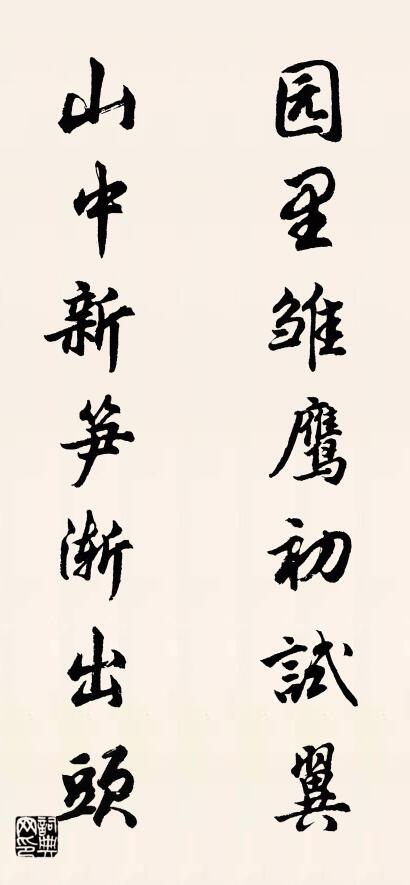 园里雏鹰初試翼
山中新笋渐出頭
詞典网印